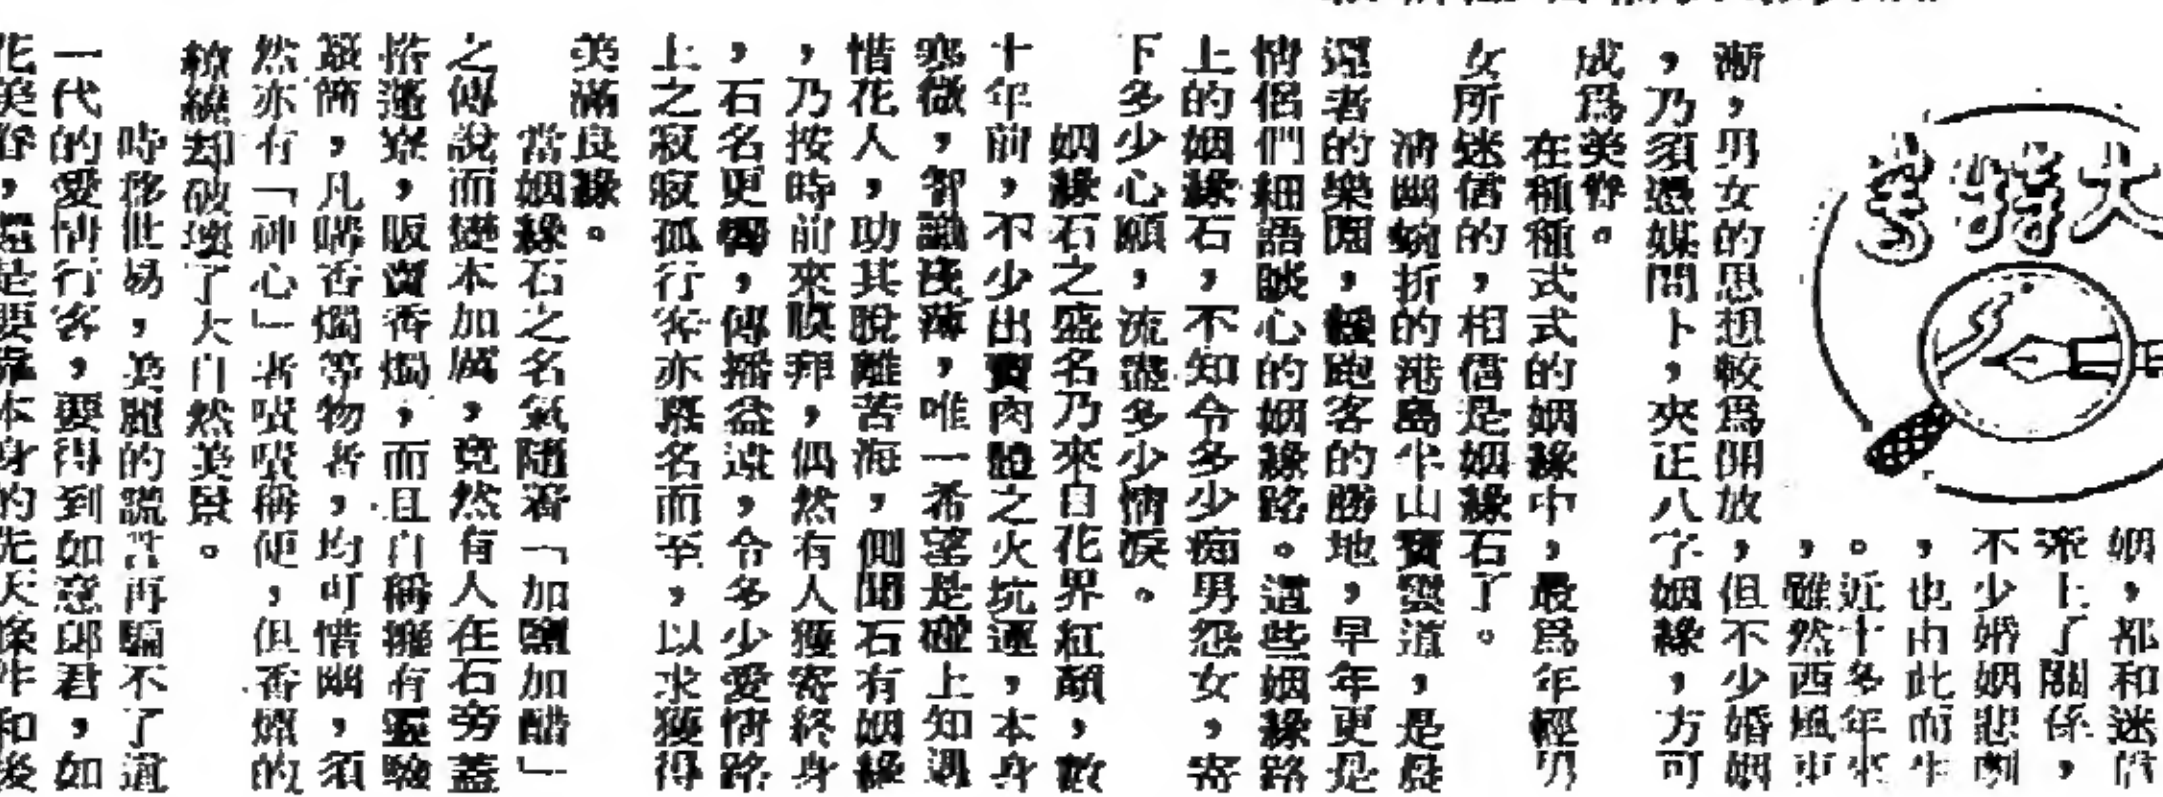 大特寫
姻，都和迷信
上了關係，
不少婚姻悲劇
，也由此而生
。近十多年來
，雖然西風東
漸，男女的思想較爲開放，但不少婚姻
，乃須憑媒問卜，夾正八字姻緣，方可
成爲美眷。
在種種式式的姻緣中，最爲年輕男
女所迷信的，相信是姻緣石了。
清幽蜿折的港島半山寶雲道，是晨
運者的樂園，緩跑客的勝地，早年更是
情侶們細語談心的姻緣路。這些姻緣路
上的姻緣石，不知令多少痴男怨女，寄
下多少心願，流盡多少情淚。
姻緣石之盛名乃來自花界紅顏，數
十年前，不少出賣肉體之火坑運，本身
寒微，智識淺薄，唯一希望是碰上知遇
惜花人，功其脫離苦海，側聞石有姻緣
，乃按時前來膜拜，偶然有人獲寄終身
，石名更噪，傳播益遠，令多少愛情路
上之寂寂孤行客亦慕名而至，以求獲得
美滿良緣。
當姻緣石之名氣隨着「加鹽加醋」
之傳說而變本加厲，竟然有人在石旁蓋
搭蓬寮，販賣香燭，而且自稱擁有靈驗
籤筒，凡購香燭等物者，均可惜幽，須
然亦有「神心」者嘖嘖稱便，但香燭的
繚繞却破壞了大自然美景。
時移世易，美麗的謊言再騙不了這
一代的愛情行客，要得到如意郎君，如
花美眷，還是要靠本身的先天條件和後